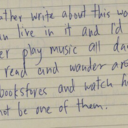 ather write about this wo
an live in it and I'd
er play music all da
read and wander aro
bookstores and watch h
not be one of them.